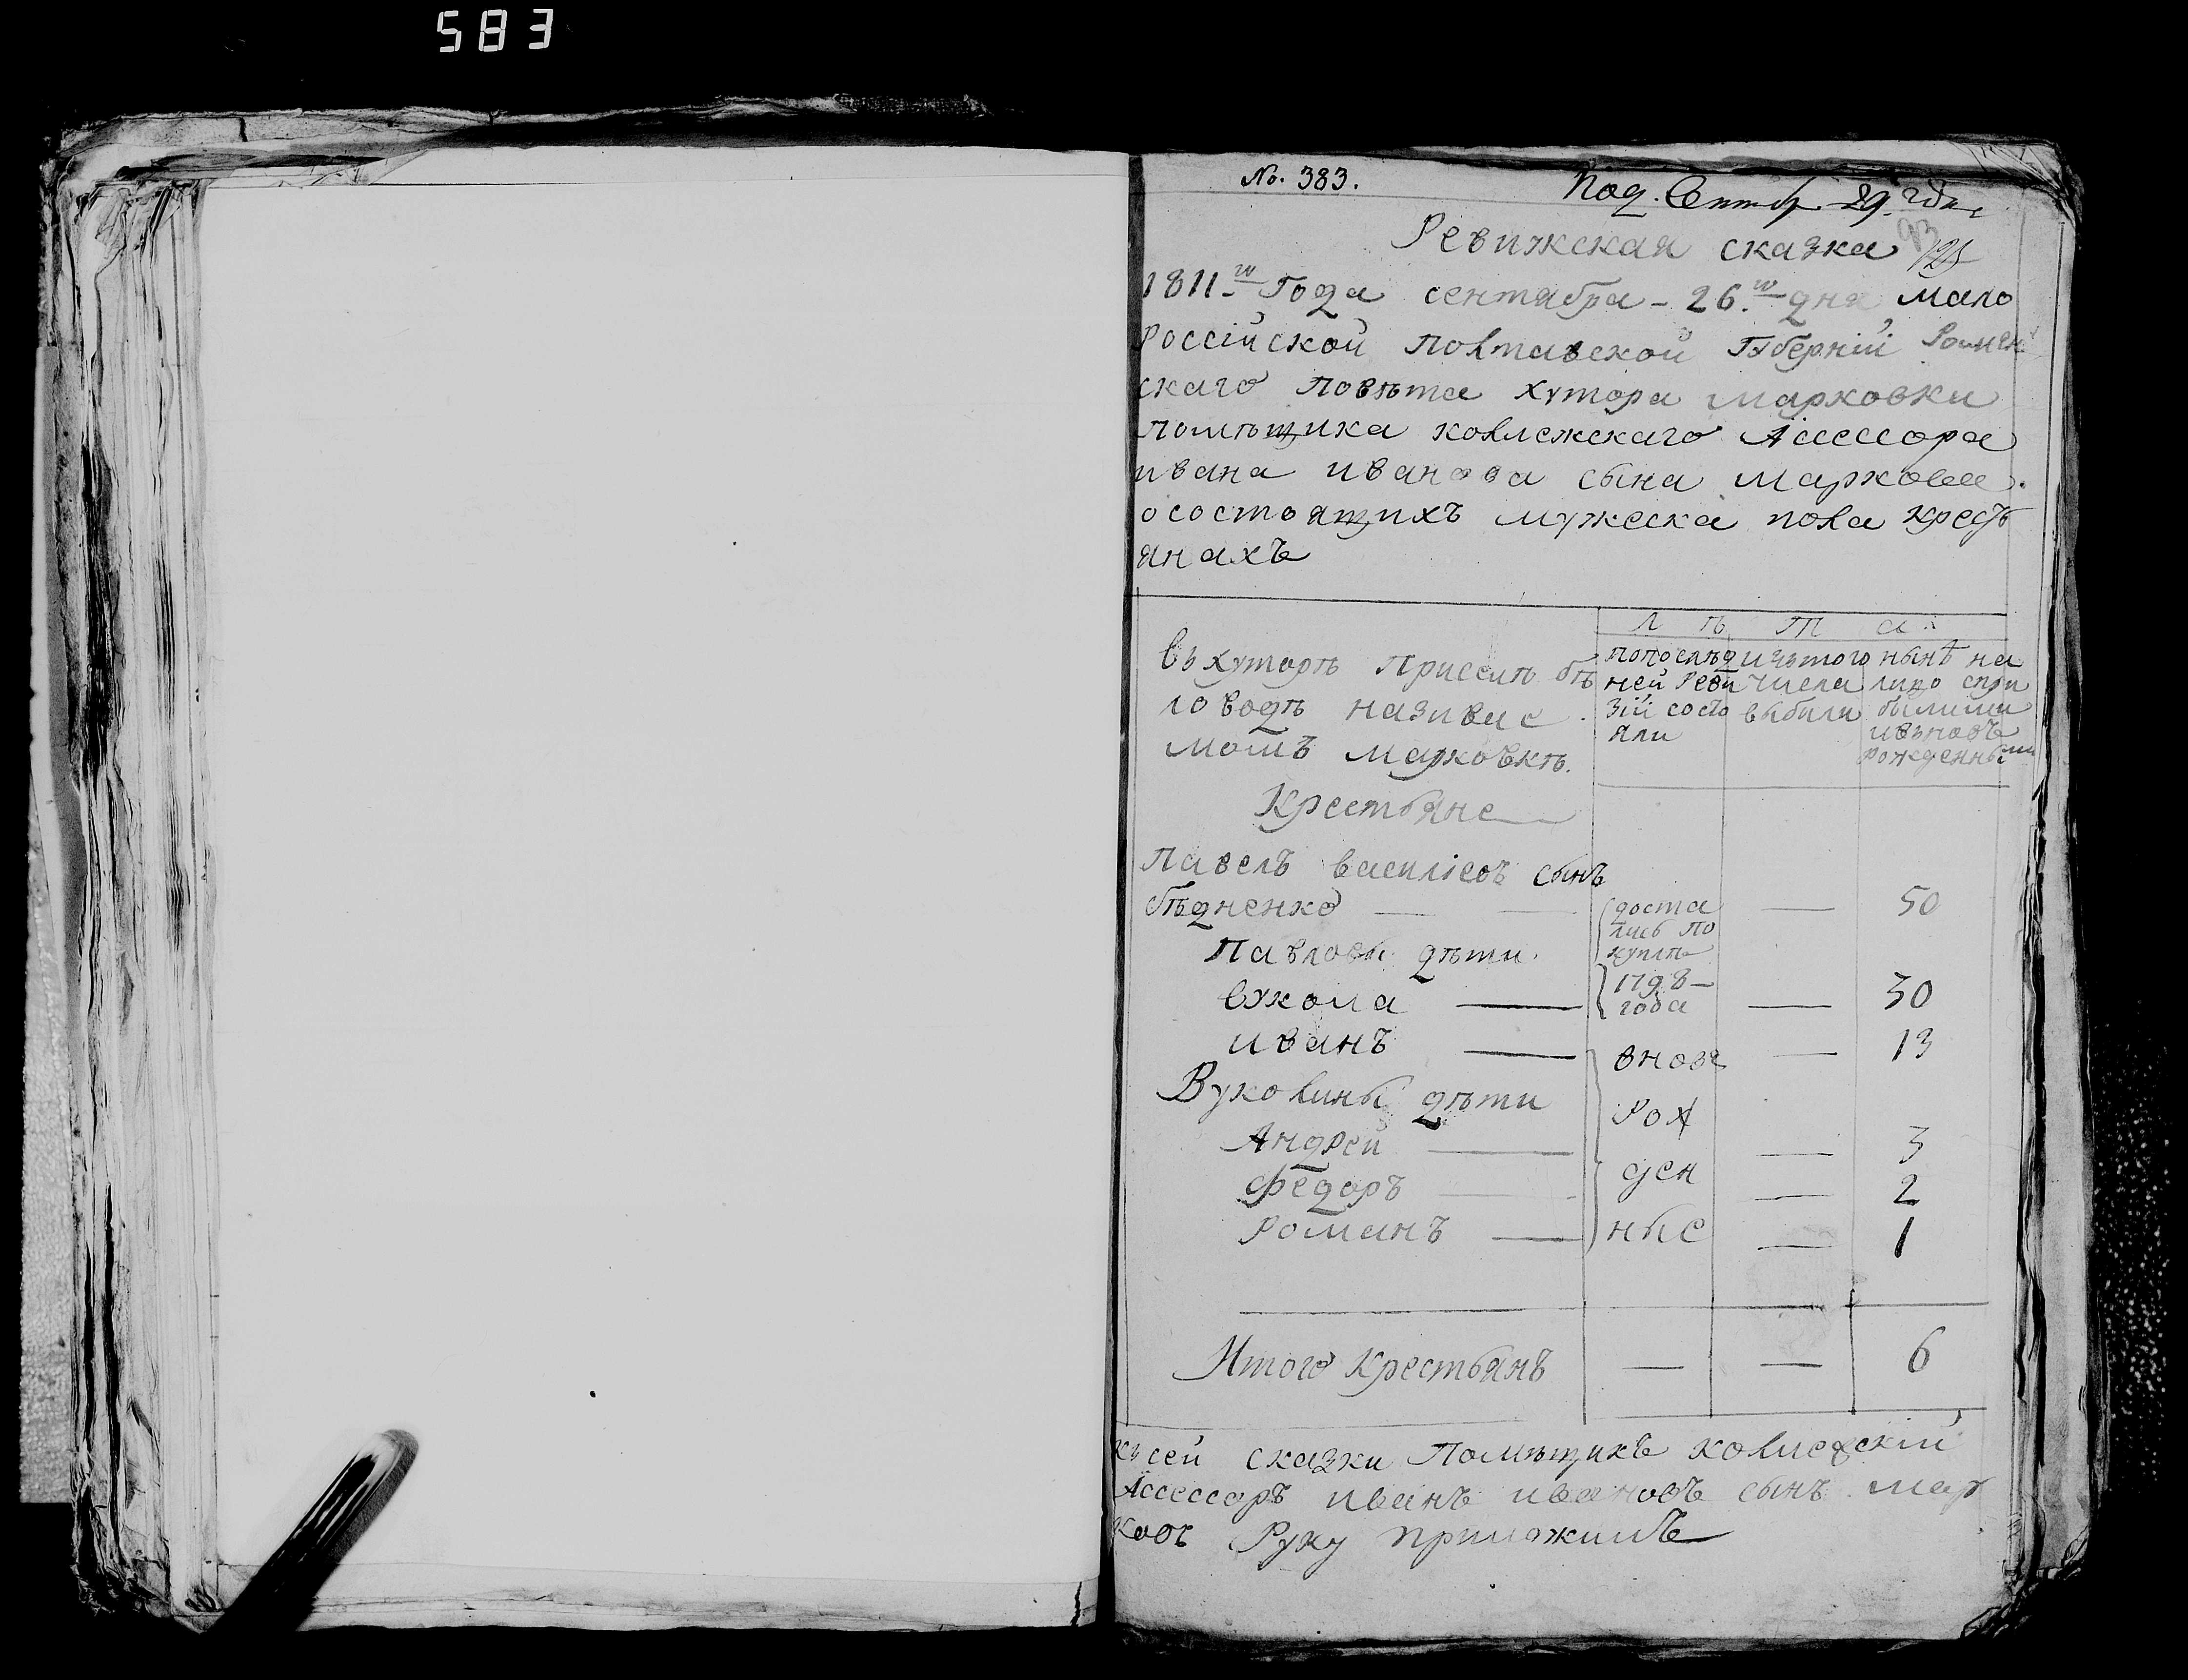 583
No. 383.
Под. Сентяб 29. дня
93
Ревижская сказка
1811.го Года сентября - 26.го дня мало
Россійской Полтавской Губерніи Ромен
скаго повѣта хутора Марковки
помѣщика коллежскаго Ассессора
ивана иванова сына маркова.
о состоящихъ мужеска пола кресть
янахъ
Л ѣ т а
въ хуторѣ при селѣ бѣ
ловодѣ називае
момъ марковкѣ.
по послѣд
ней Реви
зіи состо
яли
изъ того
числа
выбыли
нынѣ на
лицо спри
былими
ивъновъ
рожденными
Крестьяне
Павелъ василіевъ сынъ
бѣдненко — — 50
доста
лись по
куплѣ
Павловы дѣти.
вукола — — 30
1798-
года
иванъ — — 13
вновъ
Вуколины дѣти
Рож
Андрей — — 3
ден
Федоръ — — 2
Романъ — ные — 1
Итого крестьянъ — — 6
къ сей сказки Помѣщикъ колежскій
Ассессоръ иванъ ивановъ сынъ мар
ковъ Руку приложилъ